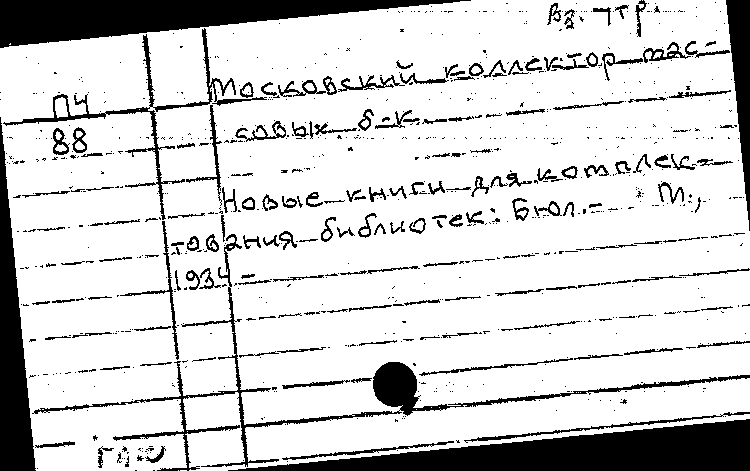 Вз. чтр.
Московский коллектор мас-
ПЧ
88
совых б-к.
Новые книги для комплек-
тования библиотек: Бюл.- М.,
1934 -